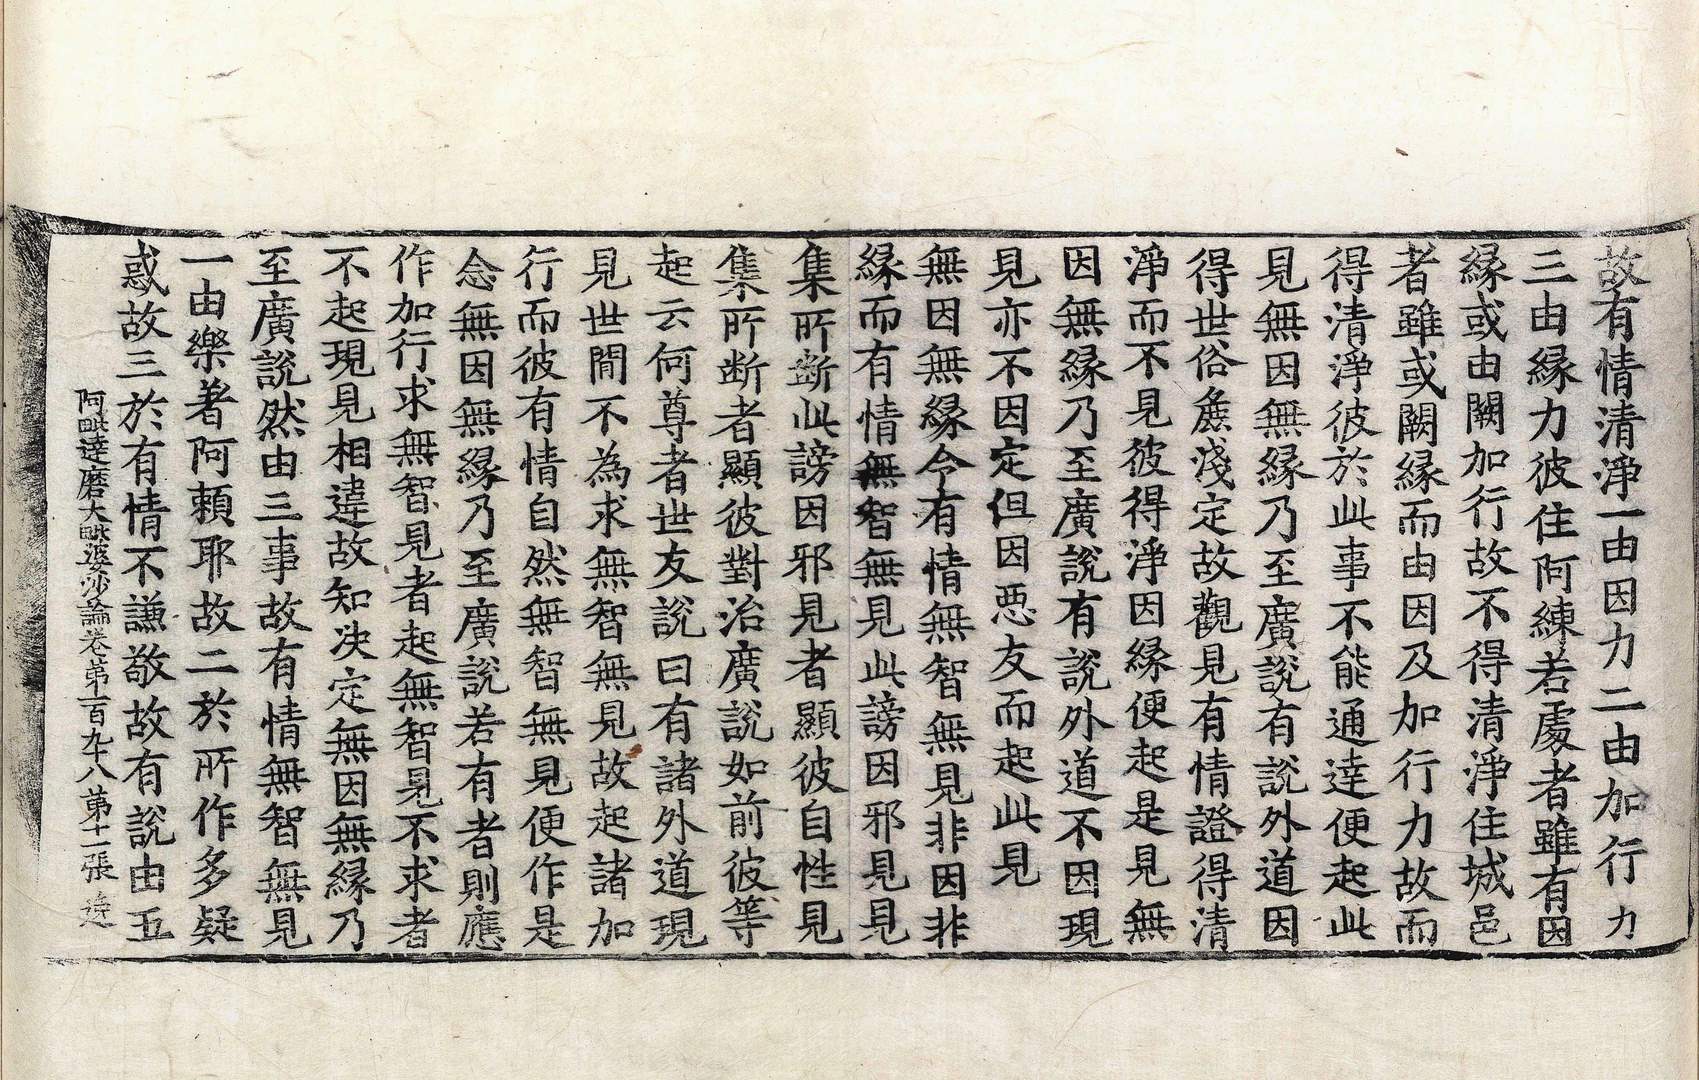 故有情清淨一由因力二由加行力
三由縁力彼住阿練若處者雖有因
縁或由闕加行故不得清淨住城邑
者雖或闕縁而由因及加行力故而
得清淨彼於此事不能通達便起此
見無因無縁乃至廣說有說外道因
得世俗麁淺定故觀見有情證得清
淨而不見彼得淨因縁便起是見無
因無縁乃至廣說有說外道不因現
見亦不因定但因惡友而起此見
無因無縁令有情無智無見非因非
縁而有情無智無見此謗因邪見見
集所断此謗因邪見者顯彼自性見
集所断者顯彼對治廣說如前彼等
起云何尊者世友說曰有諸外道現
見世間不為求無智無見故起諸加
行而彼有情自然無智無見便作是
念無因無縁乃至廣說若有者則應
作加行求無智見者起無智見不求者
不起現見相違故知决定無因無縁乃
至廣說然由三事故有情無智無見
一由樂著阿頼耶故二於所作多疑
惑故三於有情不謙敬故有說由五
阿毗達磨大毗婆沙論卷第一百九十八 第十一張